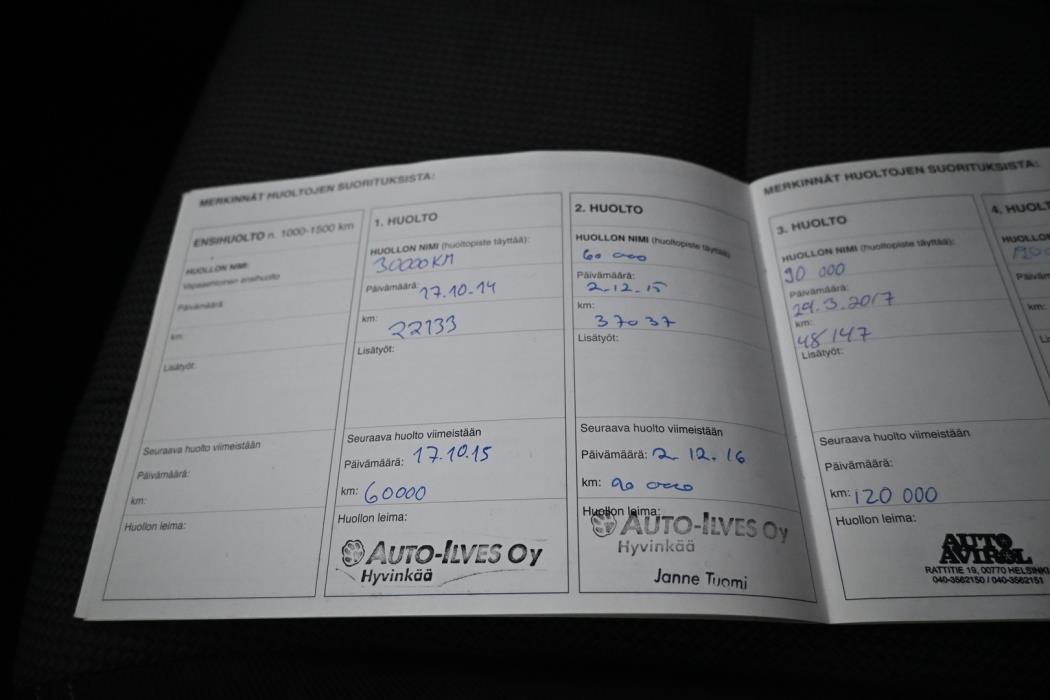 MERKINNÄT HUOLTOJEN SUORITUKSISTA:
ENSIHUOLTO n. 1000-1500 km
HUOLLON NIMI:
Vapaaehtoinen ensihuolto
Päivämäärä:
km:
Lisätyöt:
Seuraava huolto viimeistään
Päivämäärä:
km:
Huollon leima:
1. HUOLTO
HUOLLON NIMI (huoltopiste täyttää):
30000 KM
Päivämäärä: 17.10.14
km:
22133
Lisätyöt:
Seuraava huolto viimeistään
Päivämäärä: 17.10.15
km: 60000
Huollon leima:
AUTO-ILVES OY
Hyvinkää
2. HUOLTO
HUOLLON NIMI (huoltopiste täyttää):
60 000
Päivämäärä:
2.12.15
km:
37037
Lisätyöt:
Seuraava huolto viimeistään
Päivämäärä: 2.12.16
km: 90 000
Huollon leima:
AUTO-ILVES OY
Hyvinkää
Janne Tuomi
MERKINNÄT HUOLTOJEN SUORITUKSISTA:
3. HUOLTO
HUOLLON NIMI (huoltopiste täyttää):
90 000
Päivämäärä:
29.3.2017
km:
48147
Lisätyöt:
Seuraava huolto viimeistään
Päivämäärä:
km: 120 000
Huollon leima:
AUTO
RATTITIE 19, 00770 HELSINKI
040-3562150 / 040-3562151
4. HUOLT
HUOLLO
km: